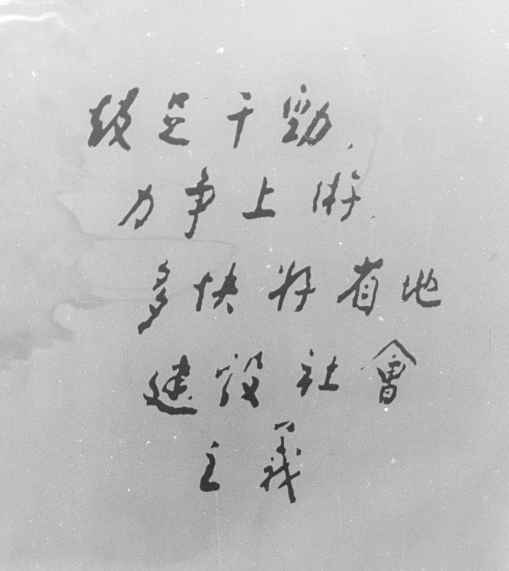 鼓足干勁,
力争上游,
多快好省地
建設社會
主義